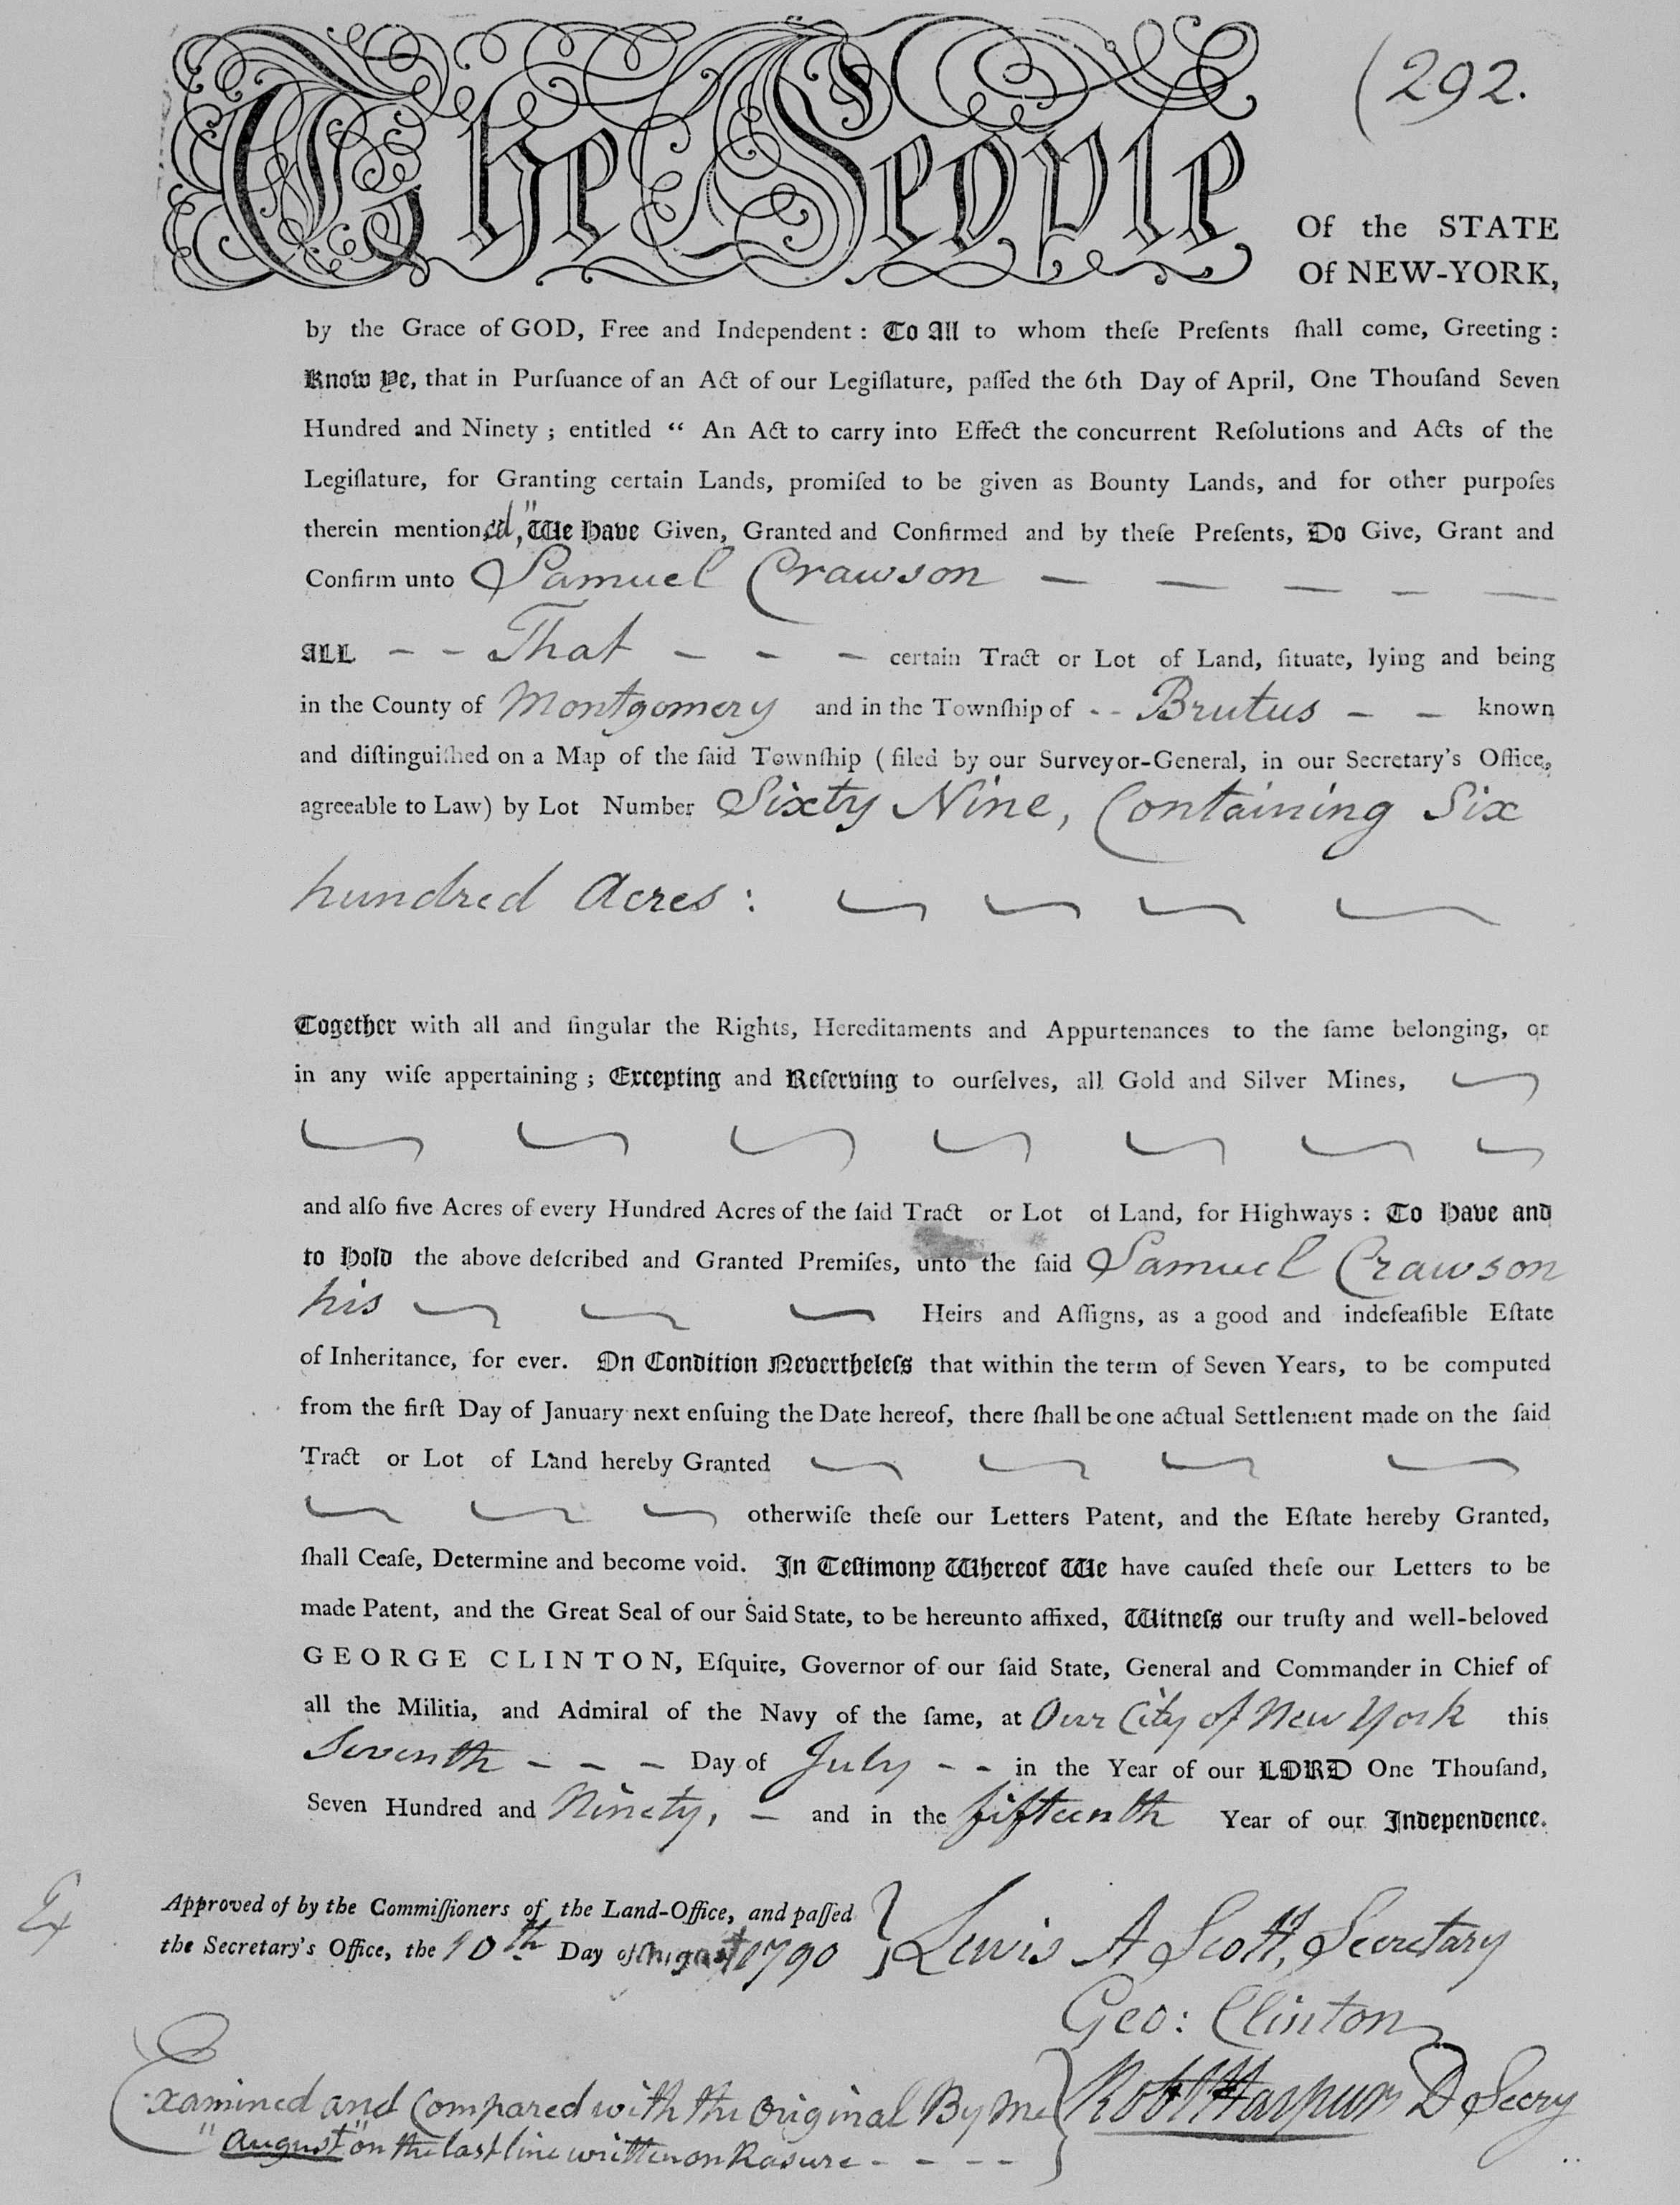 (292.
The People Of the STATE
Of NEW-YORK,
by the Grace of GOD, Free and Independent: To All to whom theſe Preſents ſhall come, Greeting:
Know Ye, that in Purſuance of an Act of our Legiſlature, paſſed the 6th Day of April, One Thouſand Seven
Hundred and Ninety; entitled “ An Act to carry into Effect the concurrent Reſolutions and Acts of the
Legiſlature, for Granting certain Lands, promiſed to be given as Bounty Lands, and for other purpoſes
therein mentioned," We Have Given, Granted and Confirmed and by theſe Preſents, Do Give, Grant and
Confirm unto Samuel Crawson — — — — —
ALL - - That - - - certain Tract or Lot of Land, ſituate, lying and being
in the County of Montgomery and in the Townſhip of - - Brutus - - known
and diſtinguiſhed on a Map of the ſaid Townſhip (filed by our Surveyor-General, in our Secretary's Office,
agreeable to Law) by Lot Number Sixty Nine, Containing Six
hundred Acres:
Together with all and ſingular the Rights, Hereditaments and Appurtenances to the ſame belonging, or
in any wiſe appertaining; Excepting and Reſerving to ourſelves, all Gold and Silver Mines,
and alſo five Acres of every Hundred Acres of the ſaid Tract or Lot of Land, for Highways: To Have and
to Hold the above deſcribed and Granted Premiſes, unto the ſaid Samuel Crawson
his Heirs and Aſſigns, as a good and indefeaſible Eſtate
of Inheritance, for ever. On Condition Nevertheleſs that within the term of Seven Years, to be computed
from the firſt Day of January next enſuing the Date hereof, there ſhall be one actual Settlement made on the ſaid
Tract or Lot of Land hereby Granted
otherwiſe theſe our Letters Patent, and the Eſtate hereby Granted,
ſhall Ceaſe, Determine and become void. In Teſtimony Whereof We have cauſed theſe our Letters to be
made Patent, and the Great Seal of our Said State, to be hereunto affixed, Witneſs our truſty and well-beloved
GEORGE CLINTON, Eſquire, Governor of our ſaid State, General and Commander in Chief of
all the Militia, and Admiral of the Navy of the ſame, at Our City of New York this
Seventh - - - Day of July - - in the Year of our LORD One Thouſand,
Seven Hundred and Ninety, - and in the fifteenth Year of our Independence.
Ex
Approved of by the Commiſſioners of the Land-Office, and paſſed
the Secretary's Office, the 10th Day of August 1790 } Lewis A Scott, Secretary
Geo: Clinton
Examined and Compared with the Original By Me } Robt Harpur D Secry
"August" on the last line written on Rasure - - - -